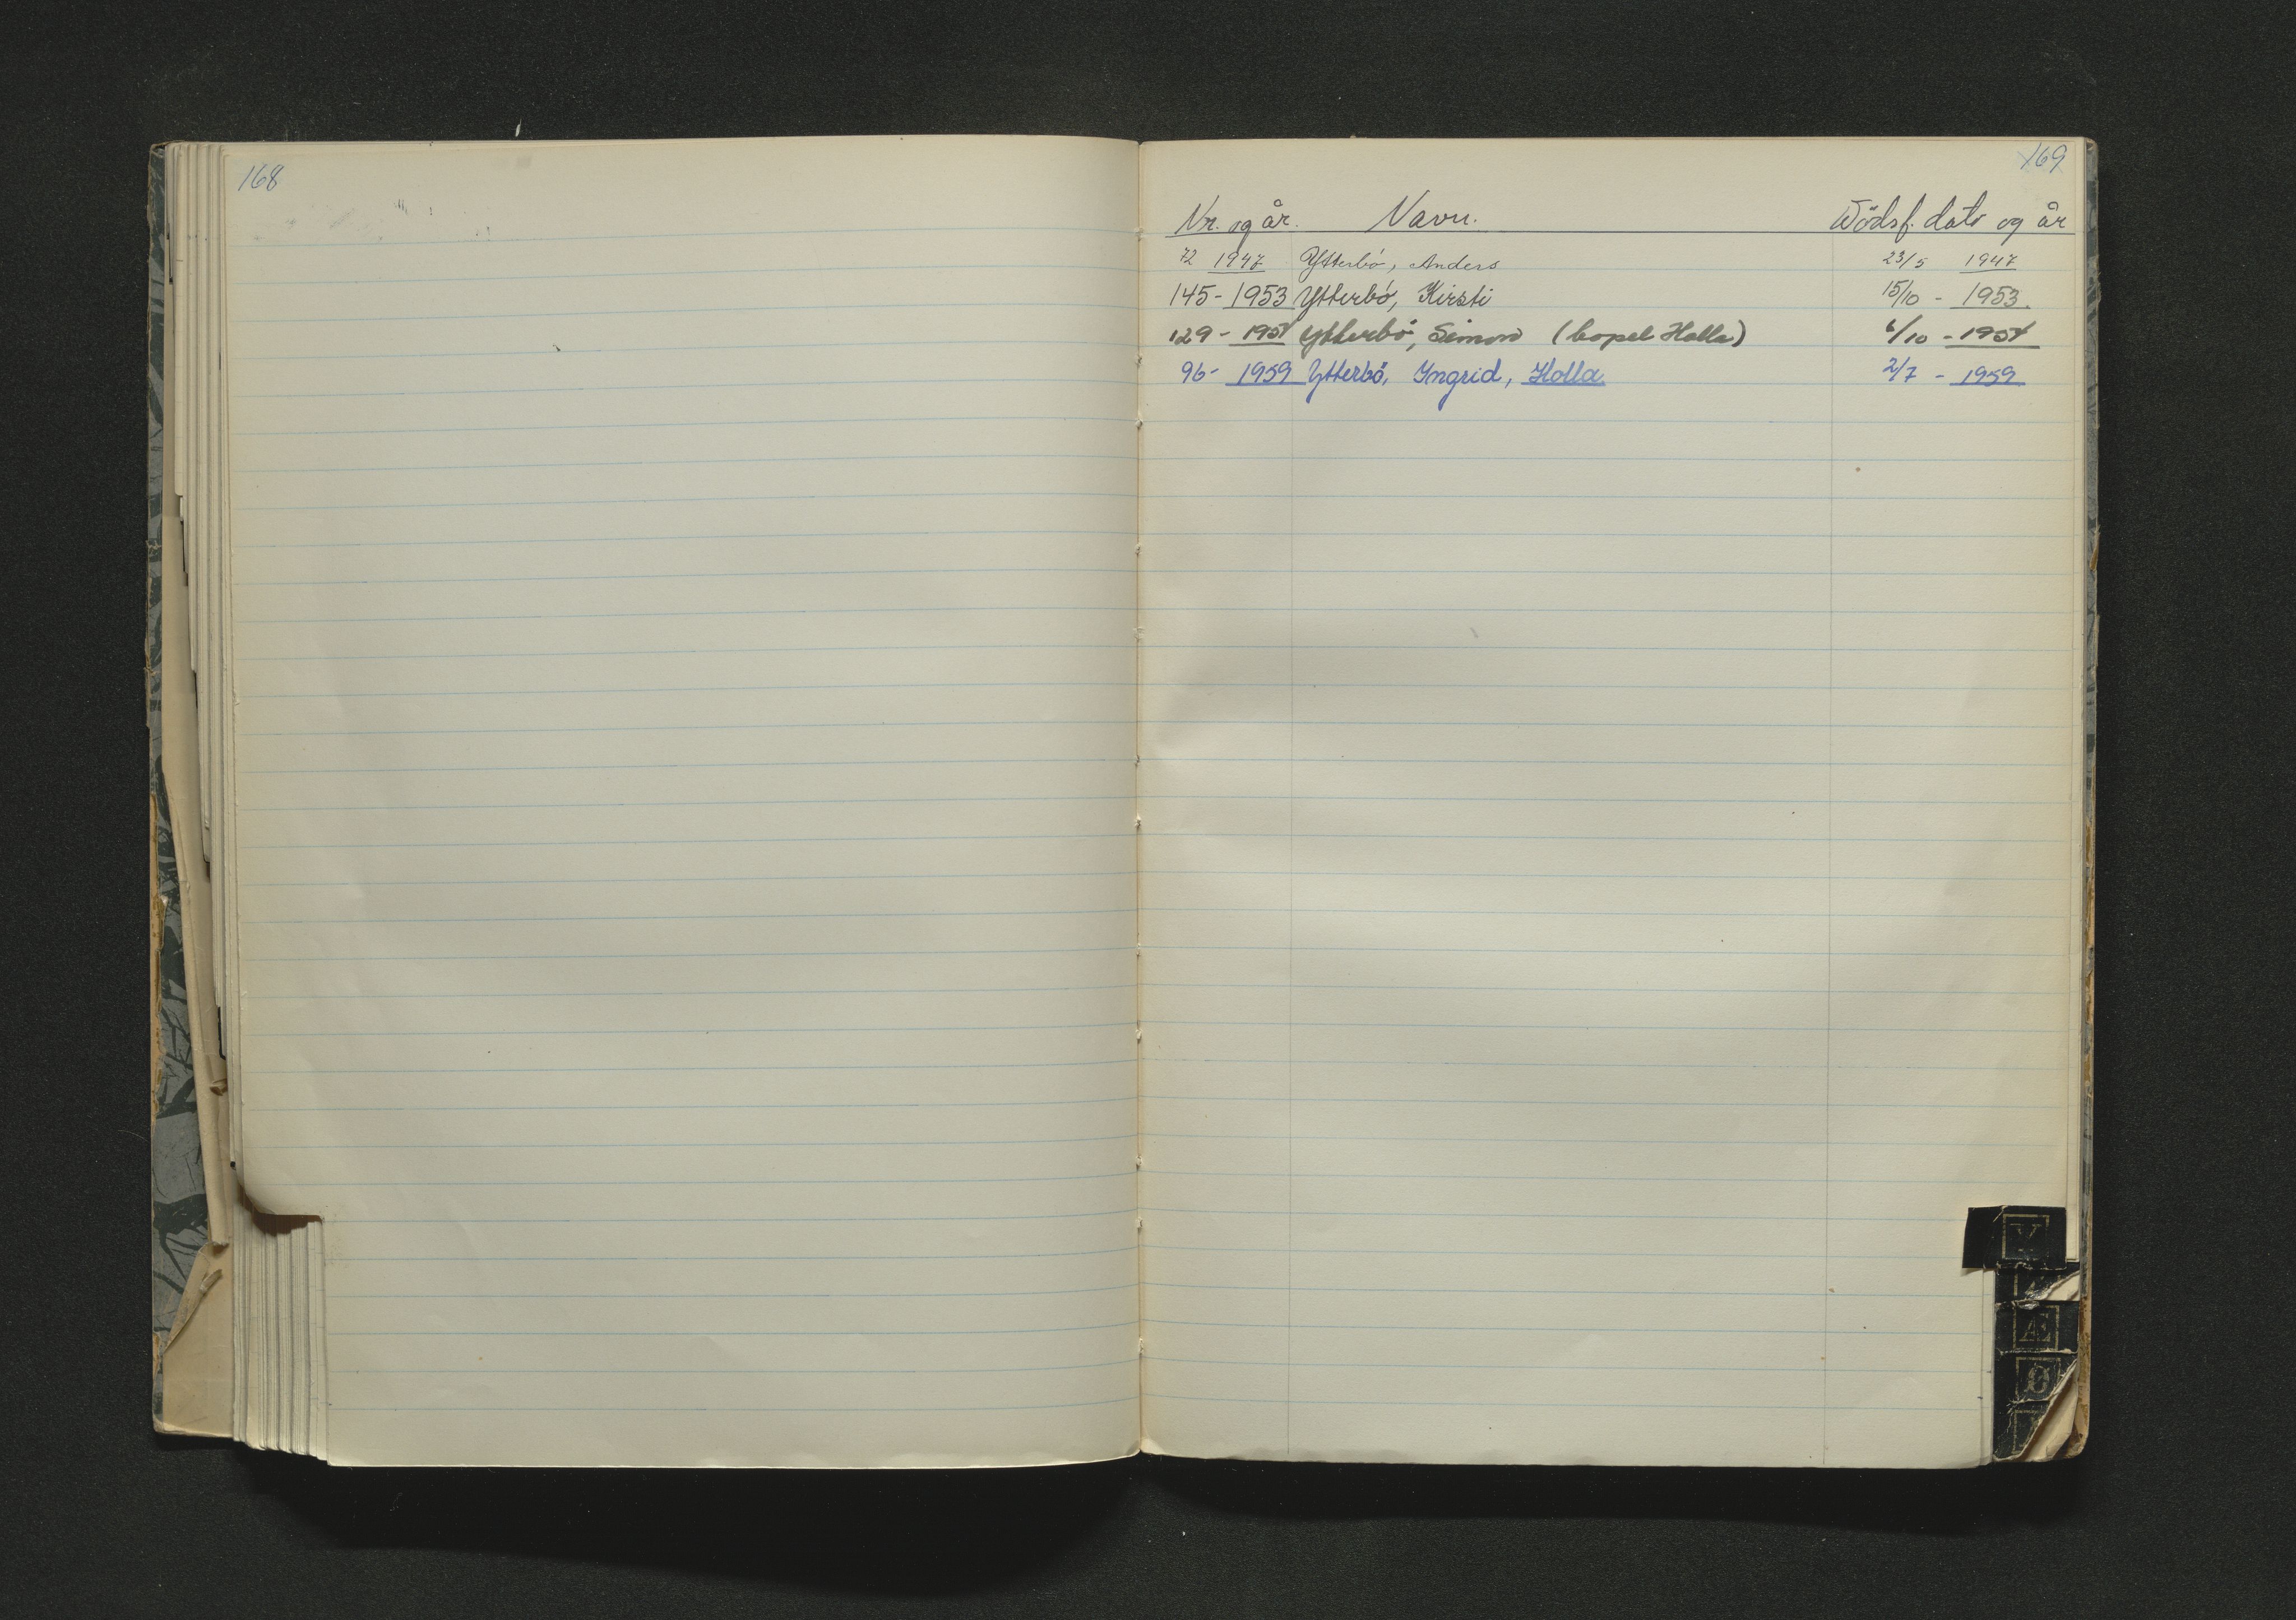 168
169
Nr. og år. Navn. Dödsf. dato og år
72 1947 Ytterbö, Anders 23/5 1947
145 - 1953 Ytterbö, Kirsti 15/10 - 1953.
129 - 1954 Ytterbö, Simon (bopel Holla) 6/10 - 1954
96 - 1959 Ytterbö, Ingrid, Holla. 2/7 - 1959
Y
Æ
Ø